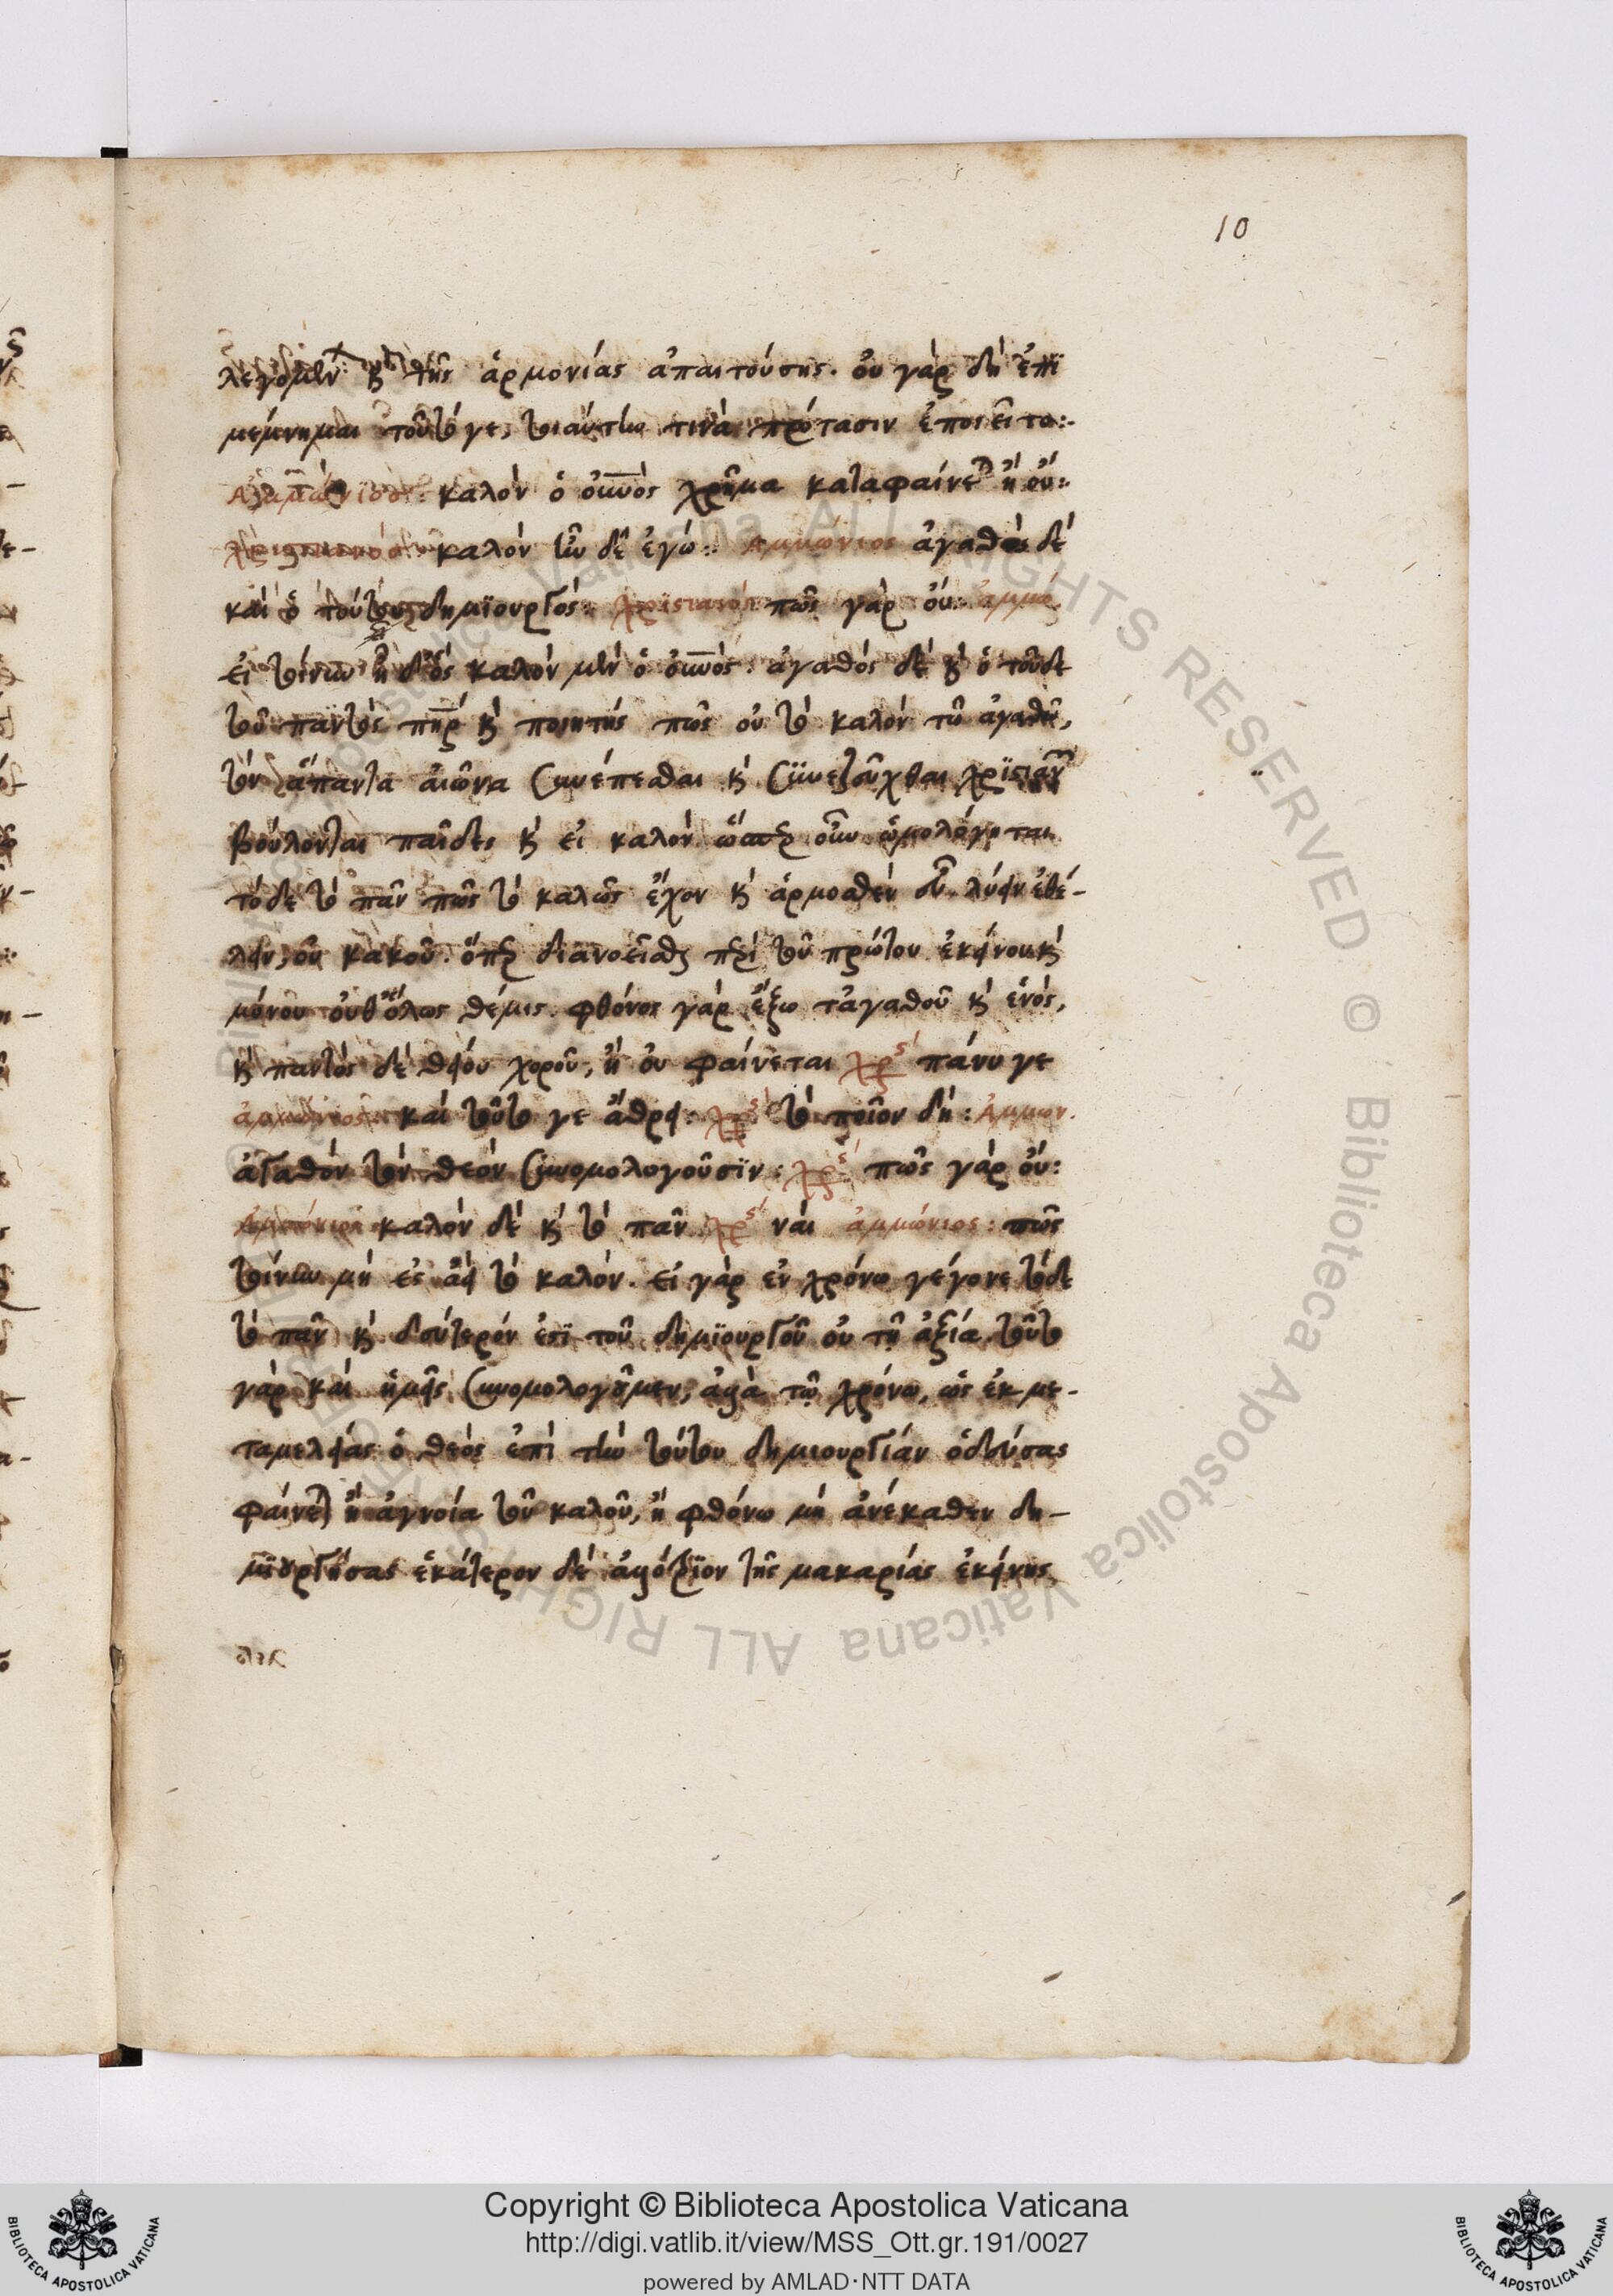 10
λεγομεν κ(αὶ) τῆς ἁρμονίας ἀπαιτούσης. οὐ γὰρ δὴ ἐπι
μέμνημαι τοῦτό γε, τοιαύτην τινὰ πρότασιν ἐποιεῖτο:
Ἀμμώνιος: καλὸν ὁ οὐνὸς χρῆμα καταφαίνετ(αι) ἢ οὔ:
χριστιανός: καλὸν ἦν δὲ ἐγώ: Ἀμμώνιος ἀγαθὸς δὲ
καὶ ὁ τούτου δημϊουργός: χρϊστιανός: πῶς γὰρ οὔ: ἀμμώ.
εἰ τοίνυν ἦ δὃς καλὸν μὲν ὁ οὐνός: ἀγαθὸς δὲ κ(αὶ) ὁ τοῦδε
τοῦ παντὸς πηρ κ(αὶ) ποιητής πῶς οὐ τὸ καλὸν τῶ ἀγαθῶ,
τὸν ἅπαντα αἰῶνα συνέπεσθαι κ(αὶ) συνεζεῦχθαι χρϊστιαν(ῶν)
βούλονται παῖδες κ(αὶ) εἰ καλὸν ὥσπερ οὖν ὡμολόγηται
τόδε τὸ πᾶν πῶς τὸ καλῶς ἔχον κ(αὶ) ἁρμοσθὲν εὖ λύειν ἐθέ-
λειν, οὐ κακοῦ. ὅπερ διανοεῖσθ(αι) περὶ τοῦ πρώτου ἐκείνου κ(αὶ)
μόνου οὐθόλως θέμις. φθόνος γὰρ ἔξω τἀγαθοῦ κ(αὶ) ἑνός,
κ(αὶ) παντὸς δὲ θείου χοροῦ, ἢ οὐ φαίνεται χρς πάνυ γε
ἀμμώνιος: καὶ τοῦτό γε ἄθρει: χρς τὸ ποῖον δή: Ἀμμων.
ἀγαθὸν τὸν θεὸν συνομολογοῦσϊν: χρς πῶς γὰρ οὔ:
Ἀμμώνιος καλὸν δὲ κ(αὶ) τὸ πᾶν χρς ναὶ ἀμμώνιος: πῶς
τοίνυν μὴ ἐς ἀεὶ τὸ καλόν. εἰ γὰρ ἐν χρόνω γέγονε τόδε
τὸ πᾶν κ(αὶ) δεύτερόν ἐστϊ τοῦ δημϊουργοῦ οὐ τῇ ἀξία, τοῦτο
γὰρ καὶ ἡμεῖς συνομολογοῦμεν, ἀλλὰ τῷ χρόνω, ὡς ἐκ με-
ταμελείας ὁ θεὸς ἐπὶ τὴν τούτου δημιουργίαν ὁδεύσας
φαίνετ(αι) ἢ ἀγνοία τοῦ καλοῦ, ἢ φθόνω μὴ ἀνέκαθεν δη-
μϊουργήσας ἑκάτερον δὲ ἀλλότρϊον τῆς μακαρίας ἐκείνης
Copyright © Biblioteca Apostolica Vaticana
http://digi.vatlib.it/view/MSS_Ott.gr.191/0027
powered by AMLAD·NTT DATA